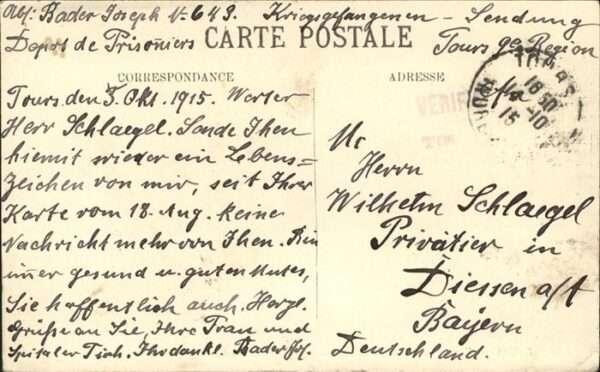 Abs: Bader Joseph № 643. Kriegsgefangenen - Sendung
Depot de Prisonniers
CARTE POSTALE
Tours 9e Region
CORRESPONDANCE
ADRESSE
Tours den 3. Okt. 1915. Werter
Herr Schlaegel. Sende Ihen
hiemit wieder ein Lebens=
Zeichen von mir, seit Ihrer
Karte vom 18. Aug. keine
Nachricht mehr von Ihen. Bin
imer gesund u. guten Mutes,
Sie hoffentlich auch. Herzl.
Grüße an Sie, Ihre Frau und
Spitaler Tich. Ihr dankl. Bader Jos.
TOURS
16 50
15 -10
VERIF
An
Herrn
Wilhelm Schlaegel
Privatier in
Diessen a/A
Bayern
Deutschland.